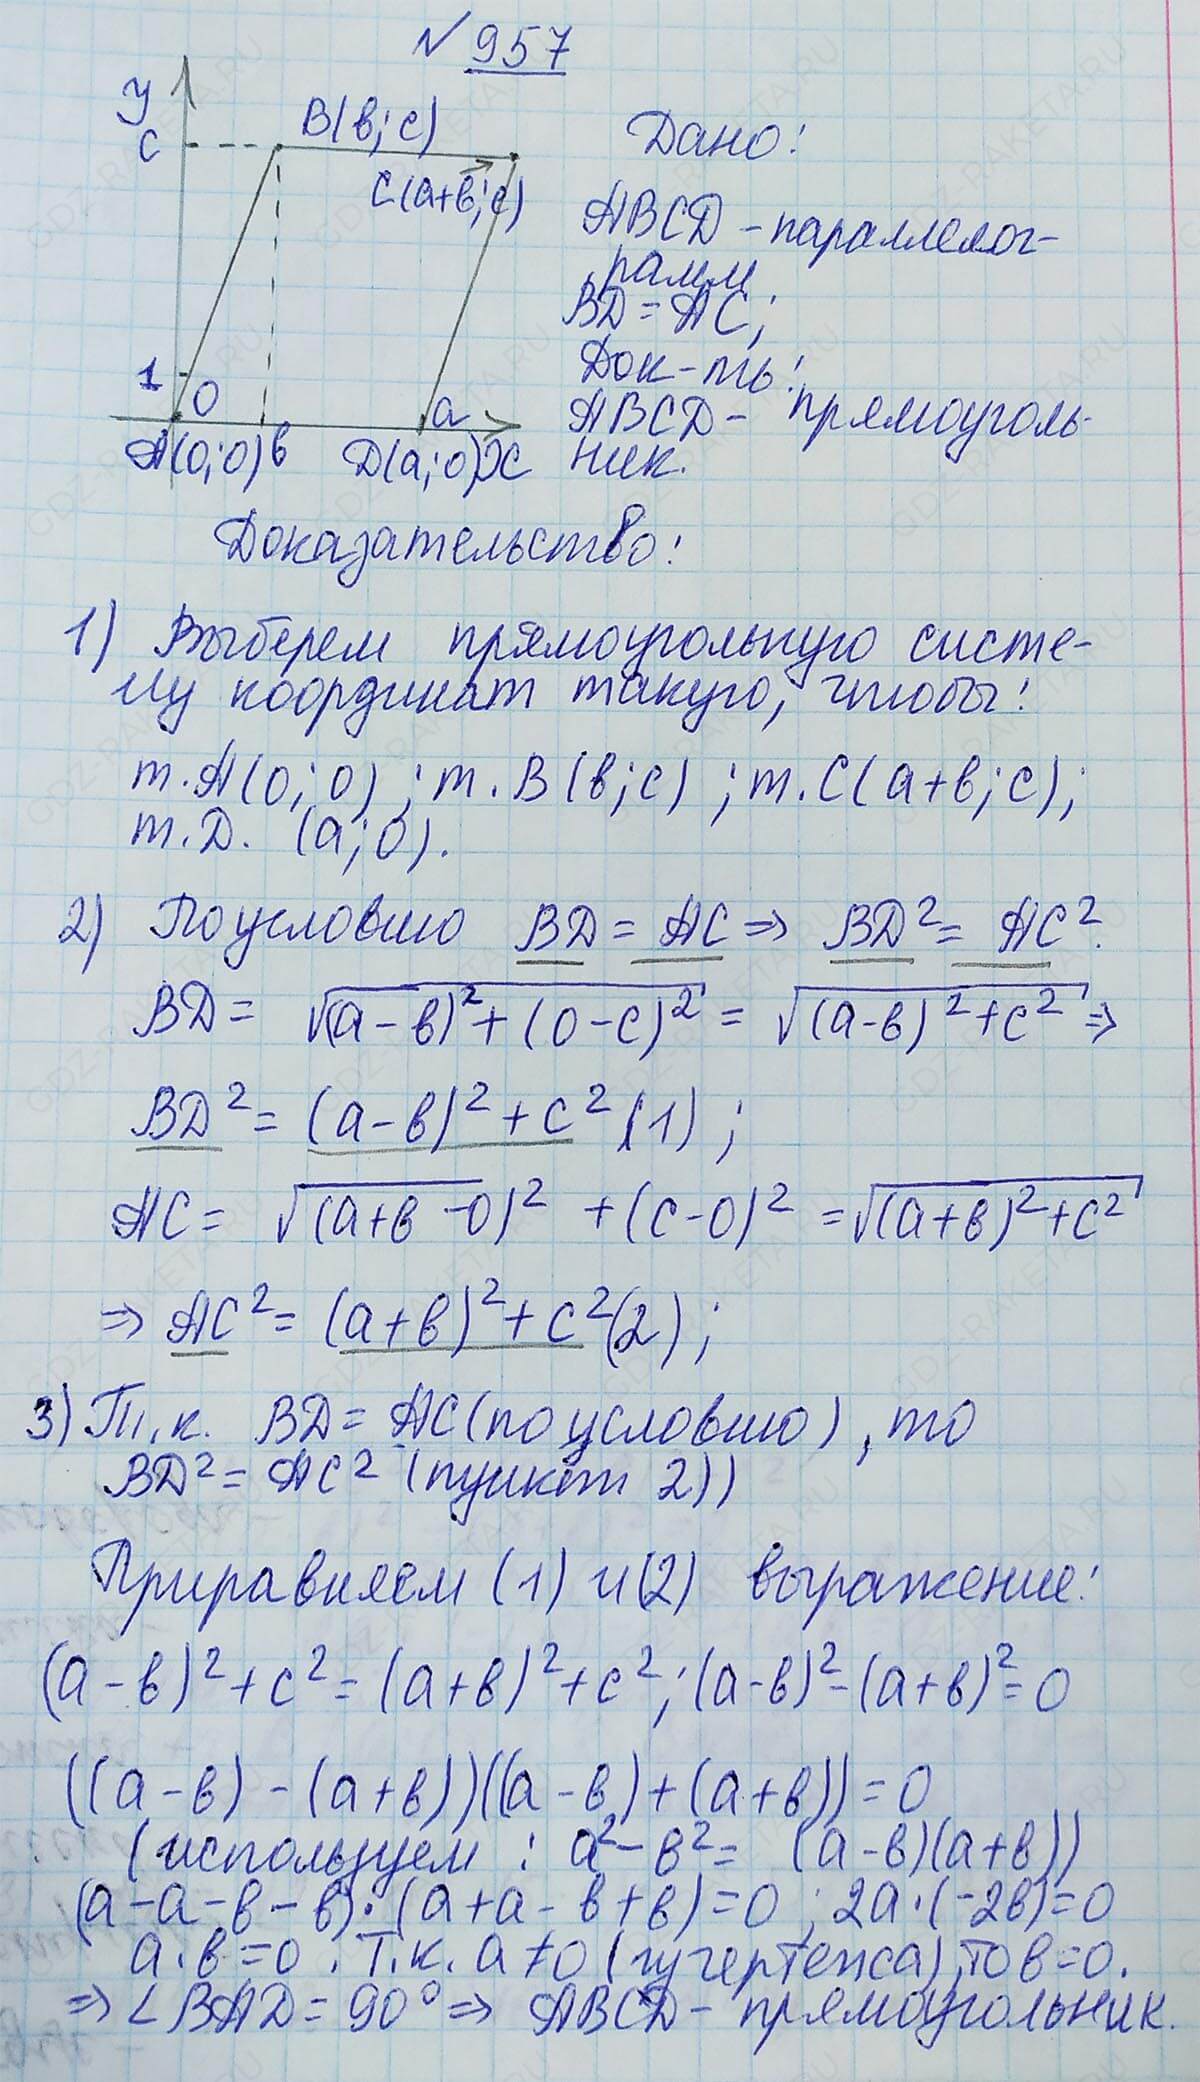 № 957
У
С
В(в; с)
С(а+в; с)
1
О
а
А(0; 0) в
D(а; 0) Х
Дано:
ABCD - параллелог-
рамм
BD = AC;
Док-ть:
ABCD - прямоуголь-
ник.
Доказательство:
1) Выберем прямоугольную систе-
му координат такую, чтобы:
т. А(0; 0); т. В(в; с); т. С(а+в; с);
т. D. (а; 0).
2) По условию BD = AC ⇒ BD² = AC².
BD = √((а-в)² + (0-с)²) = √((а-в)² + с²) ⇒
BD² = (а-в)² + с² (1);
AC = √((а+в-0)² + (с-0)²) = √((а+в)² + с²)
⇒ AC² = (а+в)² + с² (2);
3) Т.к. BD = AC (по условию), то
BD² = AC² (пункт 2))
Приравняем (1) и (2) выражение:
(а-в)² + с² = (а+в)² + с²; (а-в)² - (а+в)² = 0
((а-в) - (а+в))((а-в) + (а+в)) = 0
(используем: а² - в² = (а-в)(а+в))
(а-а-в-в)·(а+а-в+в) = 0; 2а·(-2в) = 0
а·в = 0. Т.к. а ≠ 0 ( то в = 0.
⇒ ∠BAD = 90° ⇒ ABCD - прямоугольник.